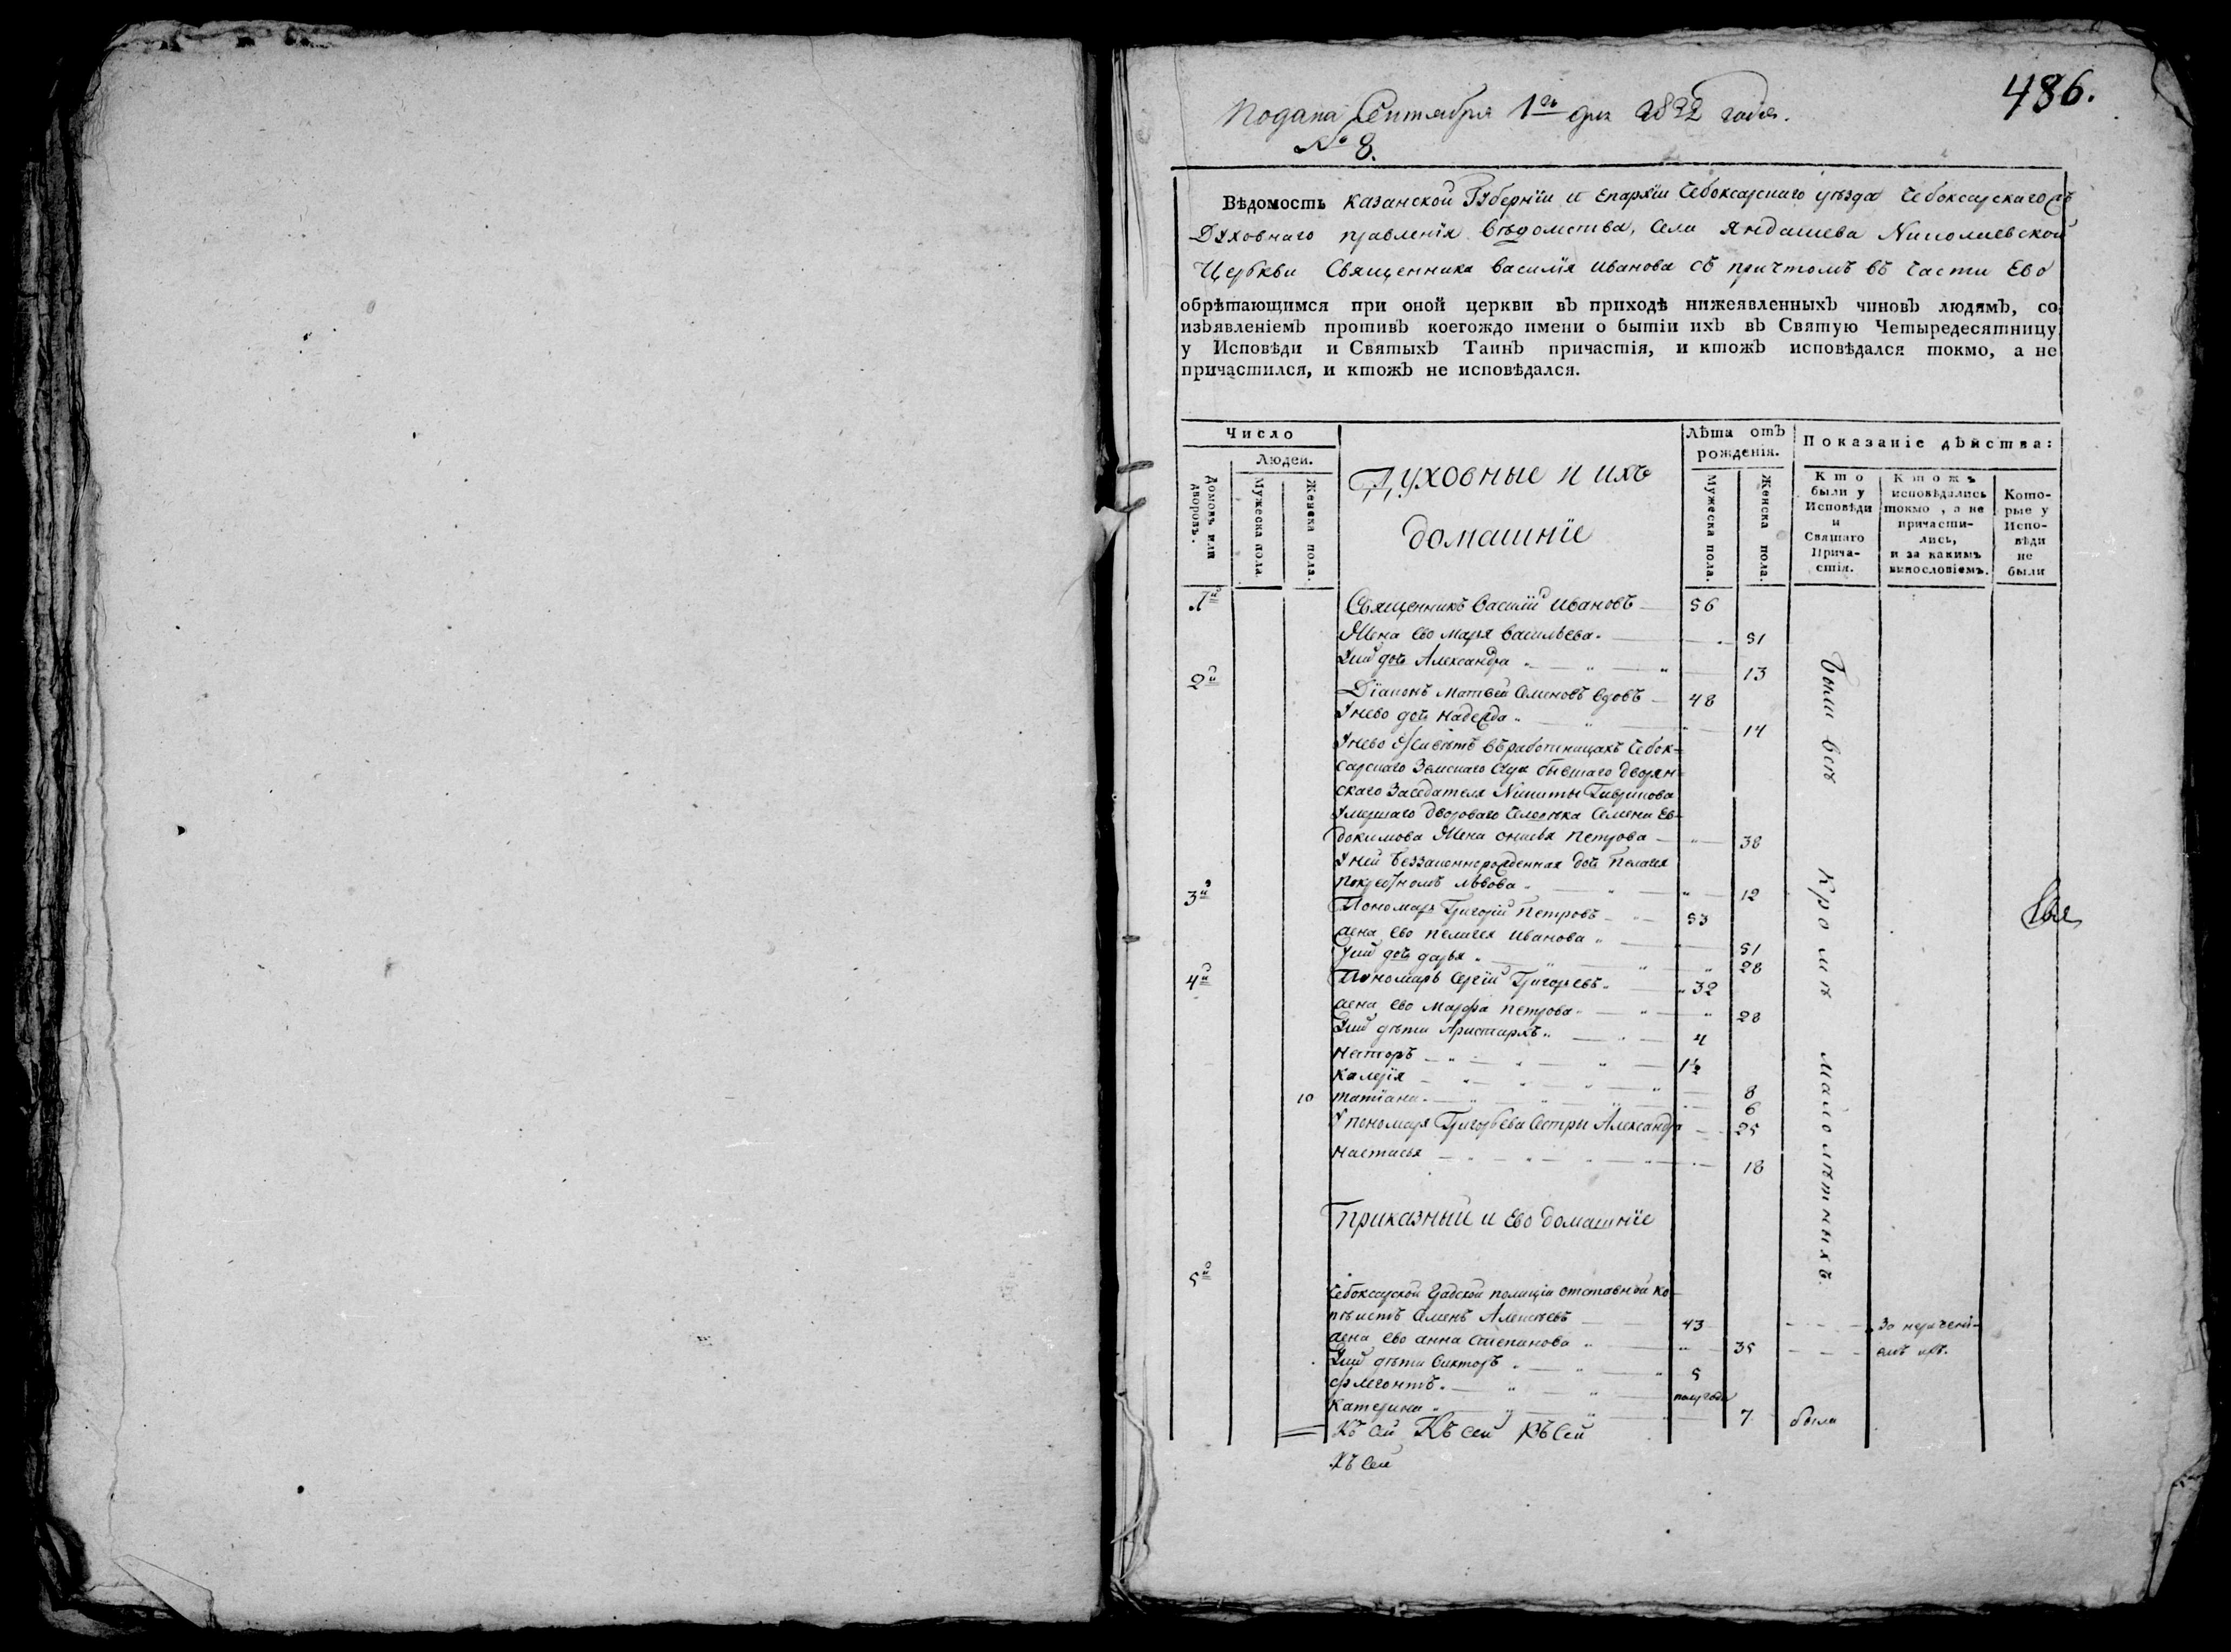 486.
Подана Сентября 1го дня 1822 года.
№ 8.
Вѣдомость Казанской Губернїи и Епархїи Чебоксарскаго уѣзда Чебоксарскаго
Духовнаго правленїя вѣдомства, Села Яндашева Николаевской
Церкви Священника Василїя Иванова съ причтомъ въ части Ево
обрѣтающимся при оной церкви въ приходѣ нижеявленныхъ чиновъ людямъ, со
изъявленіемъ противъ коегождо имени о бытіи ихъ въ Святую Четыредесятницу
у Исповѣди и Святыхъ Таинъ причастія, и ктожъ исповѣдался токмо, а не
причастился, и ктожъ не исповѣдался.
Число
Людей.
Домовъ или дворовъ.
Мужеска пола.
Женска пола.
Духовные и ихъ
домашнїе
Лѣта отъ рожденія.
Мужеска пола.
Женска пола.
Показаніе дѣйства:
Кто были у Исповѣди и Святаго Прича-стія.
Ктожъ исповѣдались токмо, а не причасти-лись, и за какимъ винословіемъ.
Кото-рые у Испо-вѣди не были
1й Священникъ Василїй Ивановъ 56
Жена ево Марья Васильева 51
У ний дочь Александра 13
2й Дїаконъ Матвей Семеновъ вдовъ 48
У нево дочь Надежда 14
У нево живетъ въ работницахъ Чебок-
сарскаго Земскаго Суда бывшаго дворян-
скаго Заседателя Никиты Гаврилова
Умершаго дворового человека Семена Ев-
докимова Жена Петрова 38
У ней беззаконнорожденная дочь Пелагея
Львова 12
3й Пономарь Григорїй Петровъ 53
Жена ево Пелагея Иванова 51
У ний дочь Дарья 28
4й Пономарь Сергїй Григорьевъ 32
Жена ево Марфа Петрова 28
У ний дѣти Аристархъ 4
Несторъ 1½
Калерїя 8
10 Татїана 6
У пономаря Григорьева Сестры Александра 25
Настасья 18
Были всѣ Кромѣ малолѣтныхъ.
Приказный и Ево домашнїе
5й Чебоксарской Градской полицїи отставной ко-
пѣистъ Семенъ Алексѣевъ 43
Жена ево Анна Степанова 35
У ний дѣти Викторъ 5
Флегонтъ полугода
Катерина 7 была
Къ сей Къ сей Къ сей
Къ сей